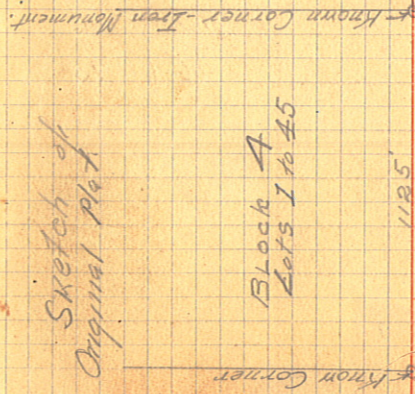 Known Corner - Iron Monument.
Sketch of
Original plat.
Block 4
Lots 1 to 45
1125'
Know Corner